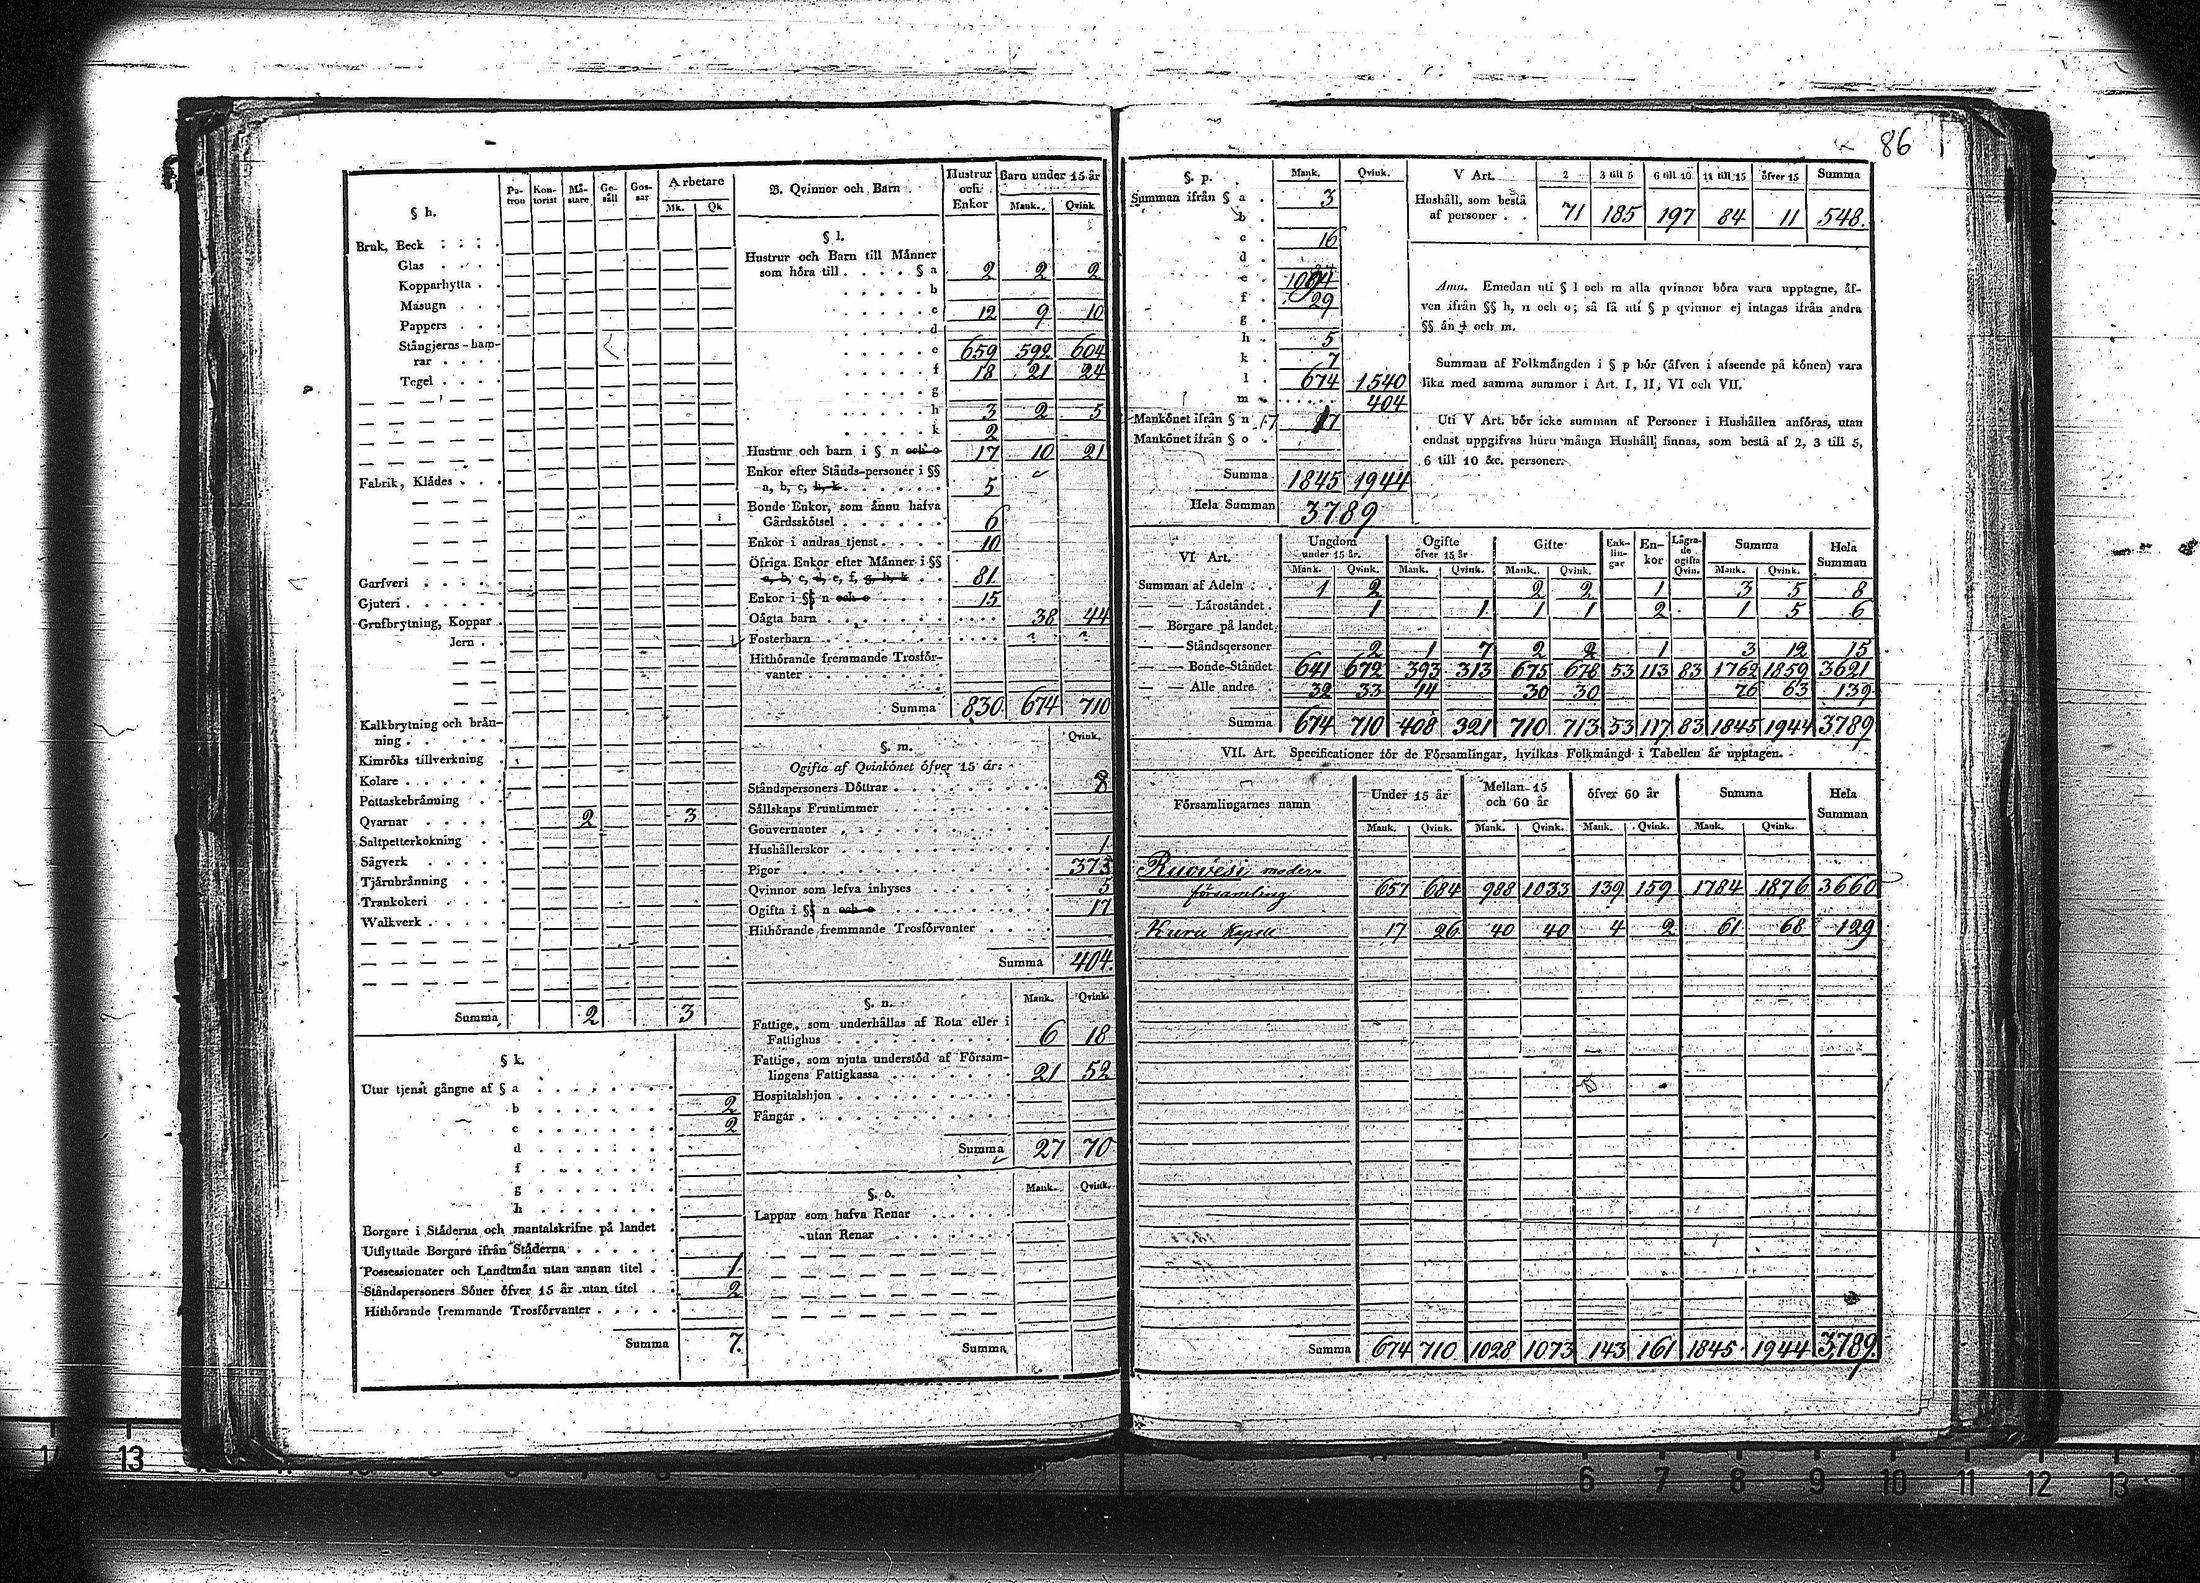 86
§ h.
Pa-tron Kon-torist Mä-stare Ge-säll Gos-sar Arbetare
Mk. Qk
Bruk, Beck
Glas
Kopparhytta
Masugn
Pappers
Stångjerns-ham-
rar
Tegel
Fabrik, Klådes
Garfveri
Gjuteri
Grufbrytning, Koppar
Jern
Kalkbrytning och brän-
ning
Kimröks tillverkning
Kolare
Pottaskebränning
Qvarnar 2 3
Saltpetterkokning
Sågverk
Tjärubränning
Trankokeri
Walkverk
Summa 2 3
§ k.
Utur tjenst gångne af § a
b 2
c 2
d
f
g
h
Borgare i Städerna och mantalskrifne på landet
Utflyttade Borgare ifrån Städerna
Possessionater och Landtmän utan annan titel 1
Ståndspersoners Söner öfver 15 år utan titel 2
Hithörande fremmande Trosförvanter
Summa 7.
B. Qvinnor och Barn Hustrur och Enkor Barn under 15 år
Mank. Qvink
§ l.
Hustrur och Barn till Männer
som höra till § a 2 2 2
b
c 12 9 10
d
e 659 592 604
f 18 21 24
g
h 3 2 5
k 2
Hustrur och barn i § n och o 17 10 21
Enkor efter Stånds-personer i §§
a, b, c, h, k 5
Bonde Enkor, som ännu hafva
Gårdsskötsel 6
Enkor i andras tjenst 10
Öfriga Enkor efter Männer i §§
a, b, c, d, e, f, g, h, k 81
Enkor i §§ n och o 15
Oägta barn 38 44
Fosterbarn
Hithörande fremmande Trosför-
vanter
Summa 830 674 710
§. m. Qvink.
Ogifta af Qvinkönet öfver 15 år:
Ståndspersoners Döttrar 8
Sällskaps Fruntimmer
Gouvernanter
Hushållerskor 1
Pigor 373
Qvinnor som lefva inhyses 5
Ogifta i §§ n och o 17
Hithörande fremmande Trosförvanter
Summa 404.
§. n. Mank. Qvink.
Fattige, som underhållas af Rota eller i
Fattighus 6 18
Fattige, som njuta understöd af Försam-
lingens Fattigkassa 21 52
Hospitalshjon
Fångar
Summa 27 70
§. o. Mank. Qvink.
Lappar som hafva Renar
utan Renar
Summa
§. p. Mank. Qvink.
Summan ifrån § a 3
b
c 16
d
e 1094
f 29
g
h 5
k 7
l 674 1540
m 404
Mankönet ifrån § n 17 17
Mankönet ifrån § o
Summa 1845 1944
Hela Summan 3789
V Art. 2 3 till 5 6 till 10 11 till 15 öfver 15 Summa
Hushåll, som bestå
af personer 71 185 197 84 11 548.
Anm. Emedan uti § l och m alla qvinnor böra vara upptagne, äf-
ven ifrån §§ h, n och o; så få uti § p qvinnor ej intagas ifrån andra
§§ än l och m.
Summan af Folkmängden i § p bör (äfven i afseende på könen) vara
lika med samma summor i Art. I, II, VI och VII.
Uti V Art. bör icke summan af Personer i Hushållen anföras, utan
endast uppgifvas huru många Hushåll finnas, som bestå af 2, 3 till 5,
6 till 10 &c. personer.
VI Art. Ungdom under 15 år. Ogifte öfver 15 år Gifte Enk-lin-gar En-kor Lägra-de ogifta Qvin. Summa Hela Summan
Mank. Qvink. Mank. Qvink. Mank. Qvink. Mank. Qvink.
Summan af Adeln 1 2 2 2 1 3 5 8
— — Läroståndet 1 1 1 1 2 1 5 6
— Borgare på landet
— — Ståndspersoner 2 1 7 2 2 1 3 12 15
— — Bonde-Ståndet 641 672 393 313 675 678 53 113 83 1762 1859 3621
— — Alle andre 32 33 14 30 30 76 63 139
Summa 674 710 408 321 710 713 53 117 83 1845 1944 3789
VII. Art. Specificationer för de Församlingar, hvilkas Folkmängd i Tabellen är upptagen.
Församlingarnes namn Under 15 år Mellan 15 och 60 år öfver 60 år Summa Hela Summan
Mank. Qvink. Mank. Qvink. Mank. Qvink. Mank. Qvink.
Ruovesi moder-
församling 657 684 988 1033 139 159 1784 1876 3660
Kuru Kapell 17 26 40 40 4 2 61 68 129
Summa 674 710 1028 1073 143 161 1845 1944 3789.
14 13 12 11 10 6 7 8 9 10 11 12 13 14